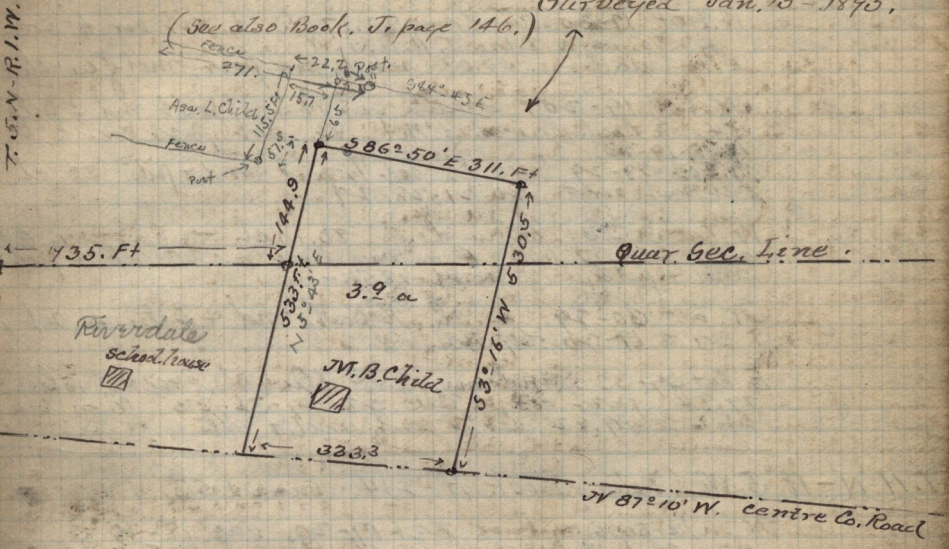 T. 5. N - R. 1. W.
Surveyed Jan. 15 - 1895.
(See also Book. J. page 146.)
Fence
271.
22.2
Post.
S84° 45 E
15.7
Asa. L. Child
115.5 Ft
65
57.5
Fence
Post
S86° 50' E 311. Ft
144.9
735. Ft
Quar Sec. Line.
533 Ft
N 5° 43' E
3.9 a
S3° 16' W 530.5
Riverdale
School house
M. B. Child
323.3
N 87° 10' W. Centre Co. Road